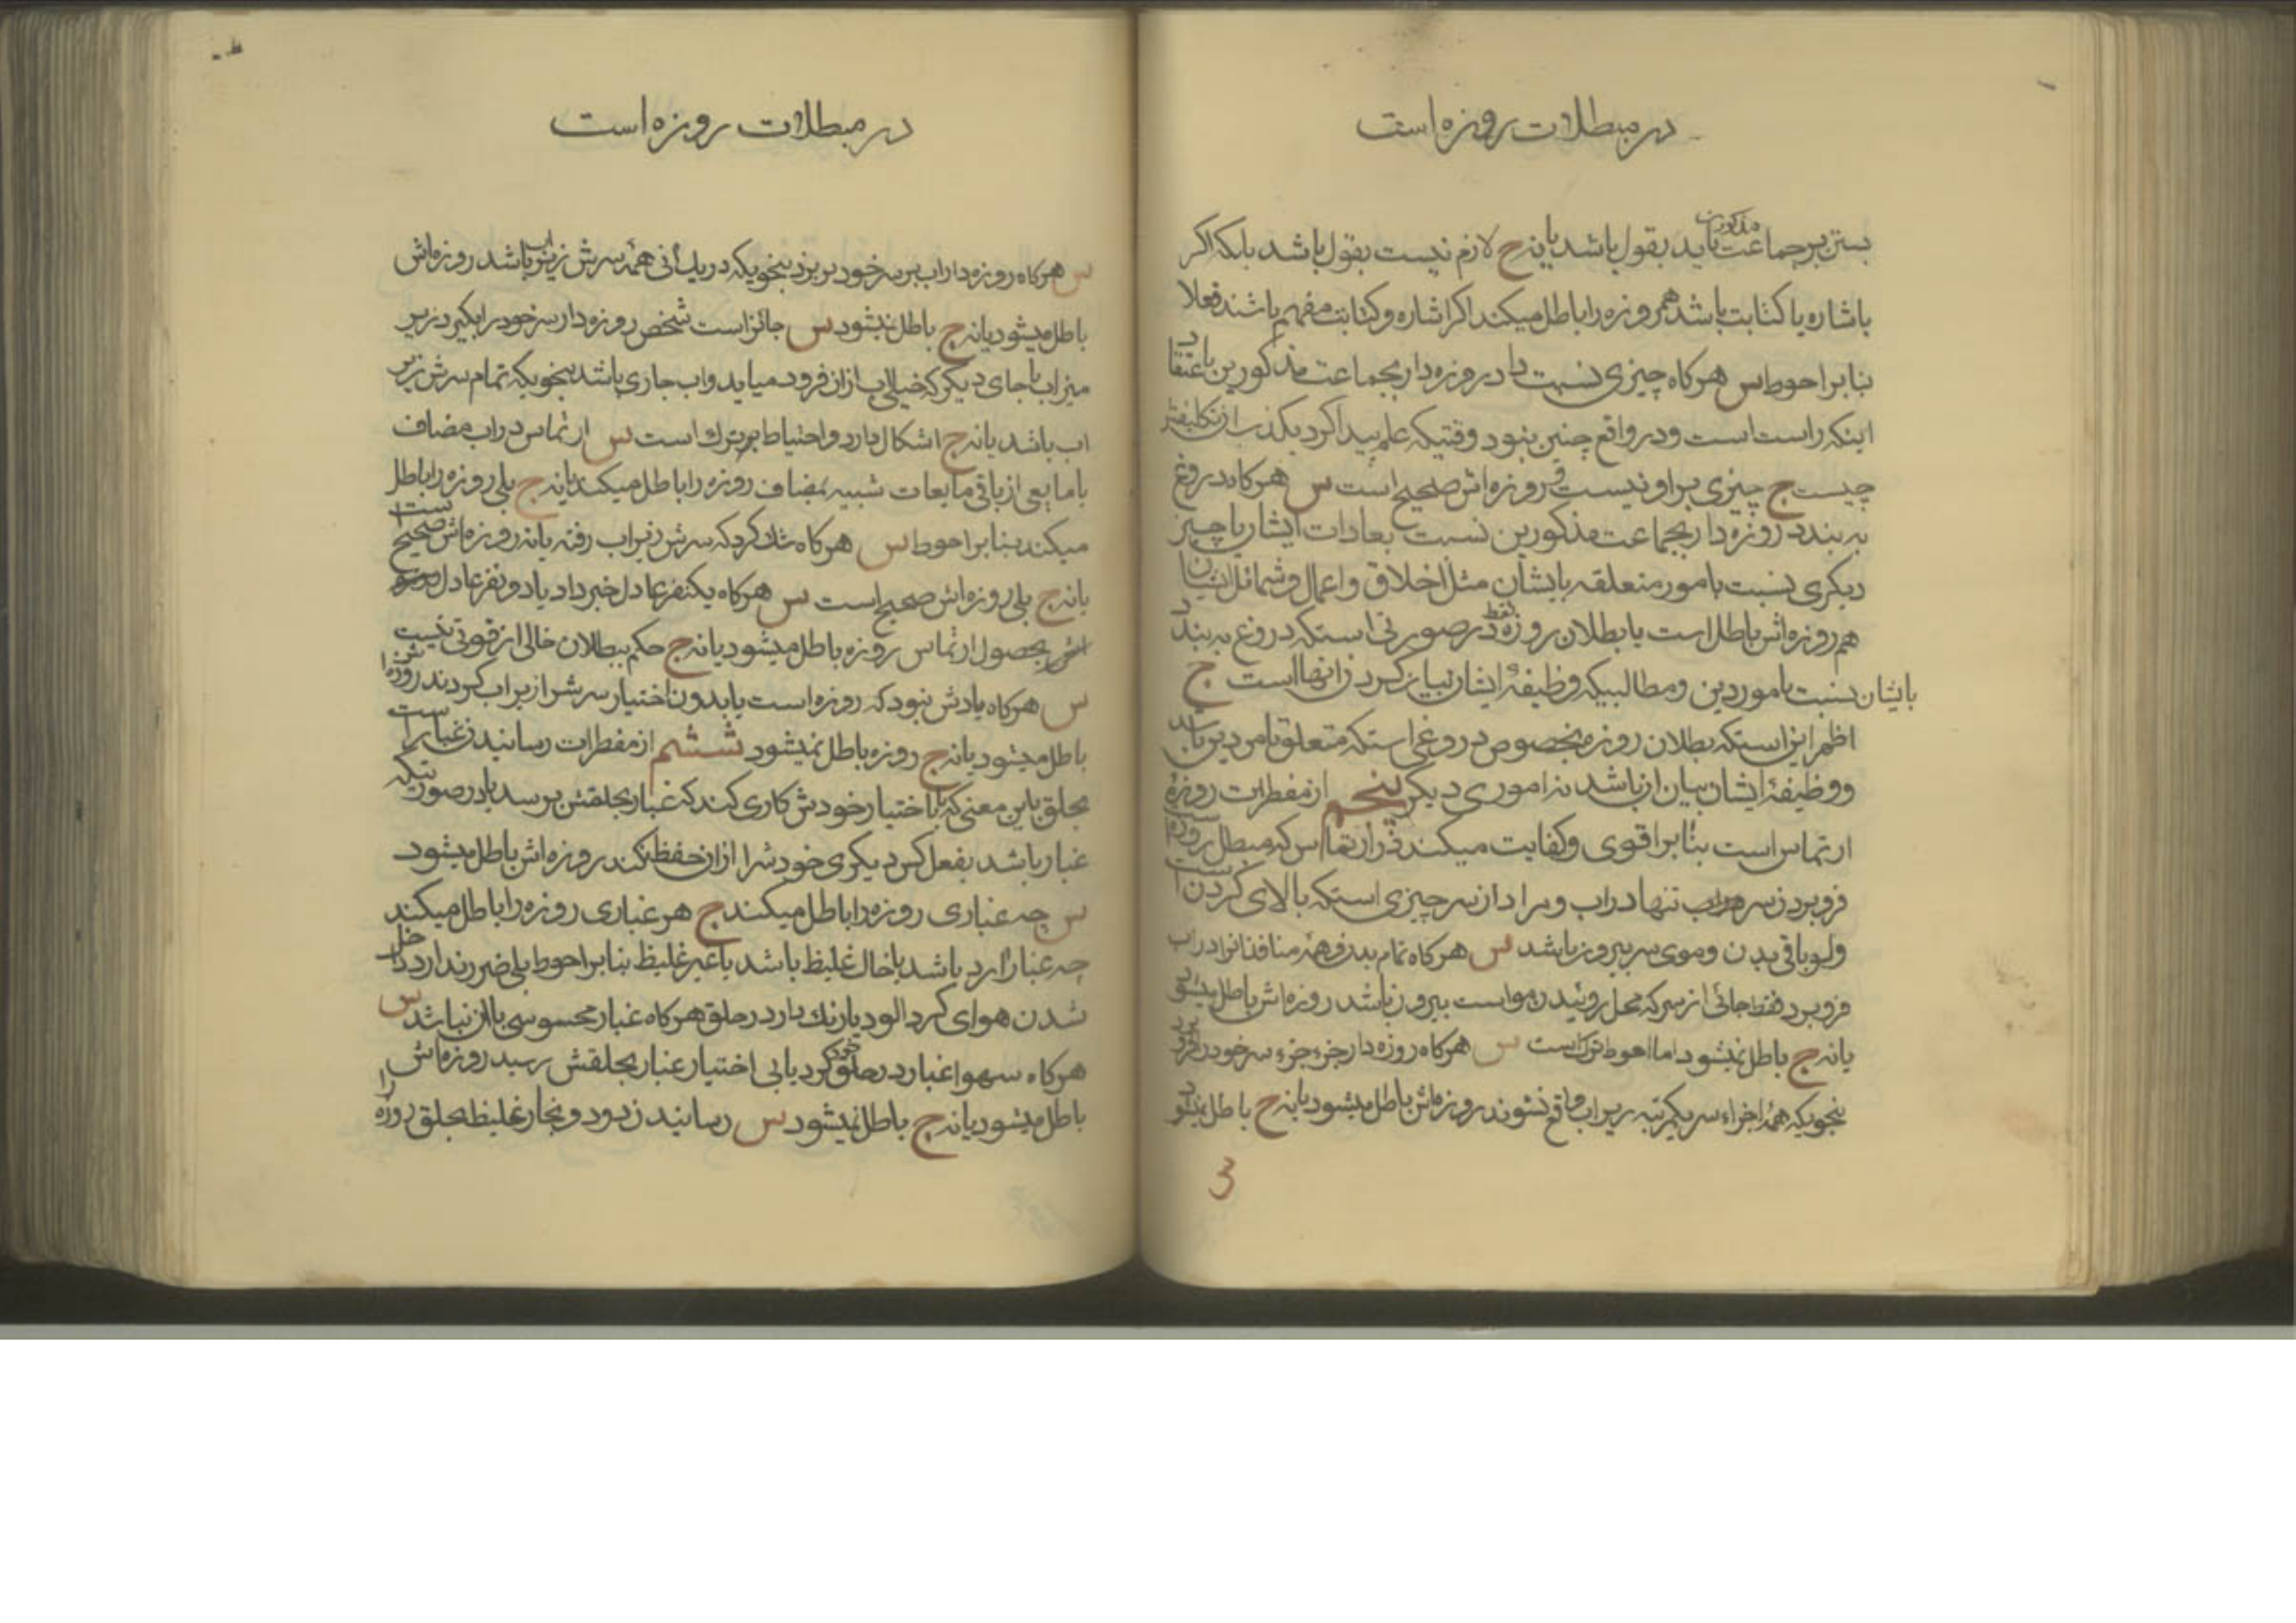 در مبطلات روزه است
بستن بر جماعت مذکورین باید بقول باشد یا نه ج لازم نیست بقول باشد بلکه اکر
باشاره یا کتابت باشد هم روزه را باطل میکند اکر اشاره و کتابت مفهم باشند فعلا
بنا بر احوط س هرکاه چیزی نسبت داد روزه دار بجماعت مذکورین باعتقاد
اینکه راست است و در واقع چنین نبود وقتیکه علم پیدا کرد بکذب ان تکلیفش
چیست ج چیزی بر او نیست و روزه اش صحیح است س هرکاه دروغ
به بندد روزه دار بجماعت مذکورین نسبت بعادات ایشان یا چیز
دیکری نسبت بامور متعلقه بایشان مثل اخلاق و اعمال و شمائل ایشان
هم روزه اش باطل است یا بطلان روزه فقط در صورتی استکه دروغ به بندد
بایشان نسبت بامور دین و مطالبیکه وظیفهٔ ایشان بیان کردن انها است ج
اظهر این استکه بطلان روزه مخصوص دروغی استکه متعلق بامر دین باشد
و وظیفهٔ ایشان بیان ان باشد نه اموری دیکر پنجم از مفطرات روزه
ارتماس است بنا بر اقوی و کفایت میکند در ارتماس که مبطل روزه است
فرو بردن سر تنها در اب و مراد از سر چیزی استکه بالای کردن است
ولو باقی بدن و موی سر بیرون باشد س هرکاه تمام بدن و همهٔ منافذ انرا در اب
فرو برد فقط جائی از سر که محل روئیدن مو است بیرون باشد روزه اش باطل میشود
یا نه ج باطل نمیشود اما احوط ترک است س هرکاه روزه دار جزء جزء سر خود را فرو برد
بنحویکه همهٔ اجزاء سر یکمرتبه زیر اب واقع نشوند روزه اش باطل میشود یا نه ج باطل نمیشود
3
در مبطلات روزه است
س هرکاه روزه دار اب بر سر خود بریزد بنحویکه در یک انی همهٔ سرش زیر اب باشد روزه اش
باطل میشود یا نه ج باطل نمیشود س جائز است شخص روزه دار سر خود را بکیرد زیر
میزاب یا جای دیکر که خیلی اب از ان فرود میاید و اب جاری باشد بنحویکه تمام سرش زیر
اب باشد یا نه ج اشکال دارد و احتیاط بر ترک است س ارتماس در اب مضاف
یا مایعی از باقی مایعات شبیه بمضاف روزه را باطل میکند یا نه ج بلی روزه را باطل
میکند بنا بر احوط س هرکاه شک کرد که سرش زیر اب رفته یا نه روزه اش صحیح است
یا نه ج بلی روزه اش صحیح است س هرکاه یکنفر عادل خبر داد یا دو نفر عادل
بحصول ارتماس روزه باطل میشود یا نه ج حکم ببطلان خالی از قوتی نیست
س هرکاه یادش نبود که روزه است یا بدون اختیار سرش را زیر اب کردند روزه اش
باطل میشود یا نه ج روزه باطل نمیشود ششم از مفطرات رسانیدن غبار است
بحلق باین معنی که با اختیار خودش کاری کند که غبار بحلقش برسد یا در صورتیکه
غبار باشد بفعل کس دیکری خودش را از ان حفظ نکند روزه اش باطل میشود
س چه غباری روزه را باطل میکند ج هر غباری روزه را باطل میکند
چه غبار ارد باشد یا خاک غلیظ باشد یا غیر غلیظ بنا بر احوط بلی ضرر ندارد داخل
شدن هوای کرد الود یا رنک دارد در حلق هرکاه غبار محسوسی با ان نباشد س
هرکاه سهوا غبار در حلق خود کرد یا بی اختیار غبار بحلقش رسید روزه اش
باطل میشود یا نه ج باطل نمیشود س رسانیدن دود و بخار غلیظ بحلق روزه را